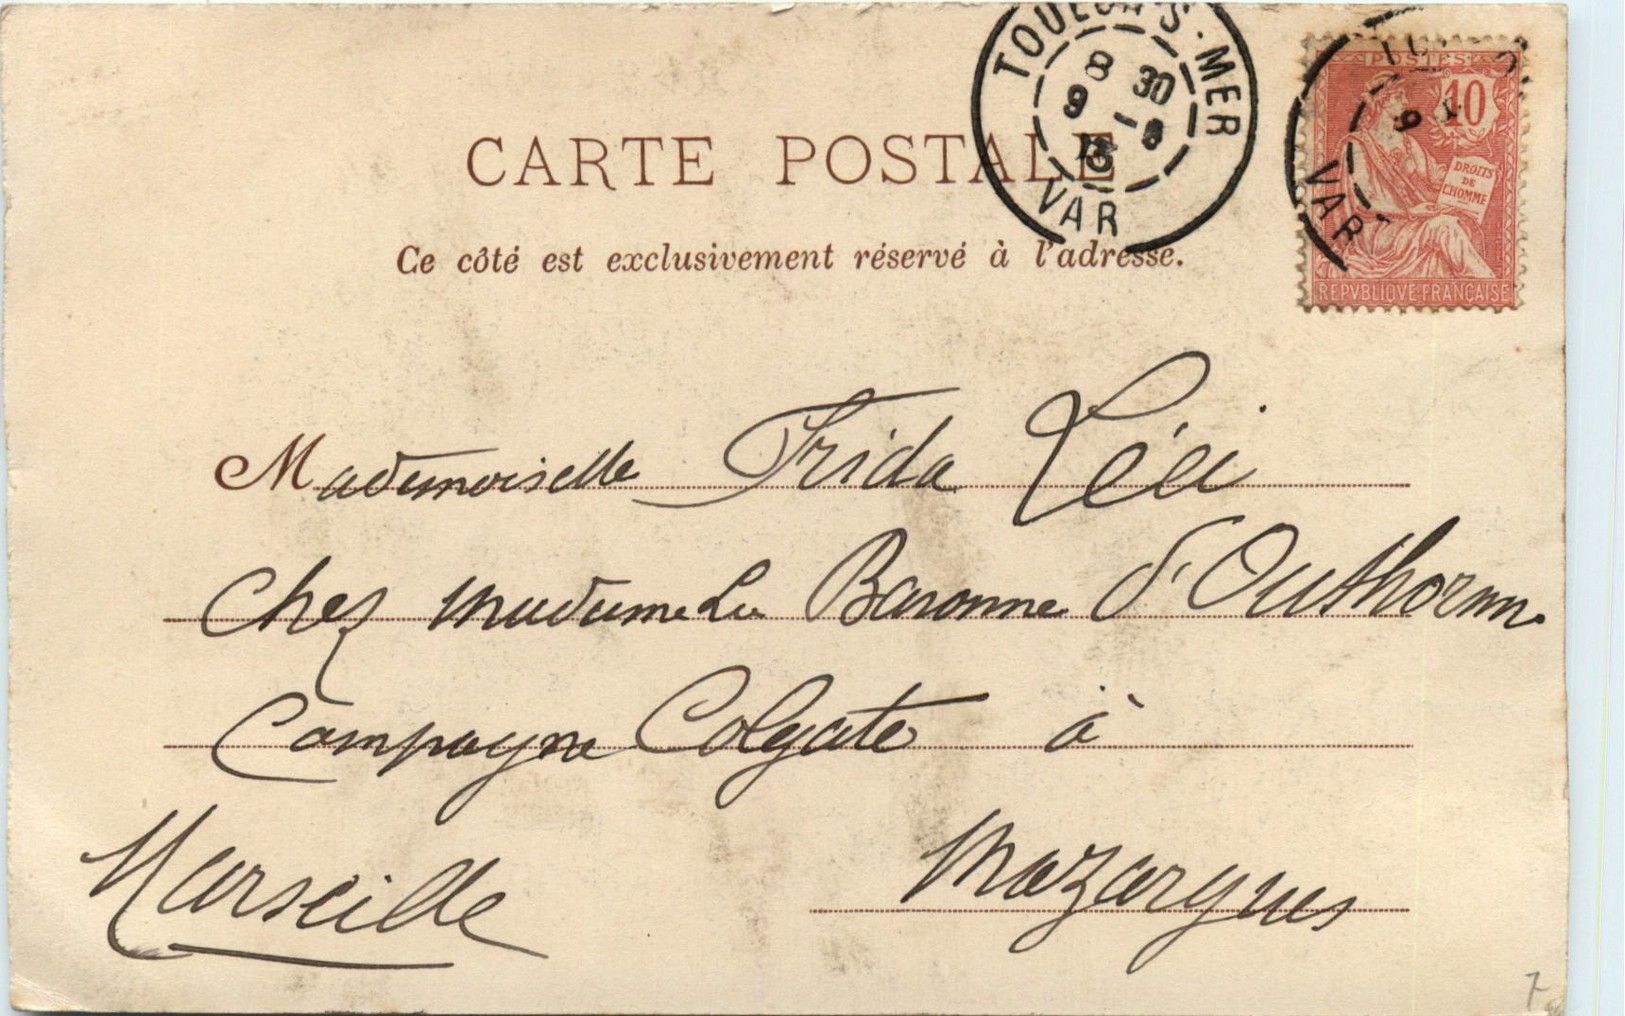 TOULON-S-MER
8 30
9 -8
VAR
POSTES
10
DROITS
DE
L'HOMME
REPVBLIQVE·FRANÇAISE
9
VAR
CARTE POSTALE
Ce côté est exclusivement réservé à l'adresse.
Mademoiselle Frida
Chez Madame La Baronne
Campagne Colgate à
Marseille Mazargues
7